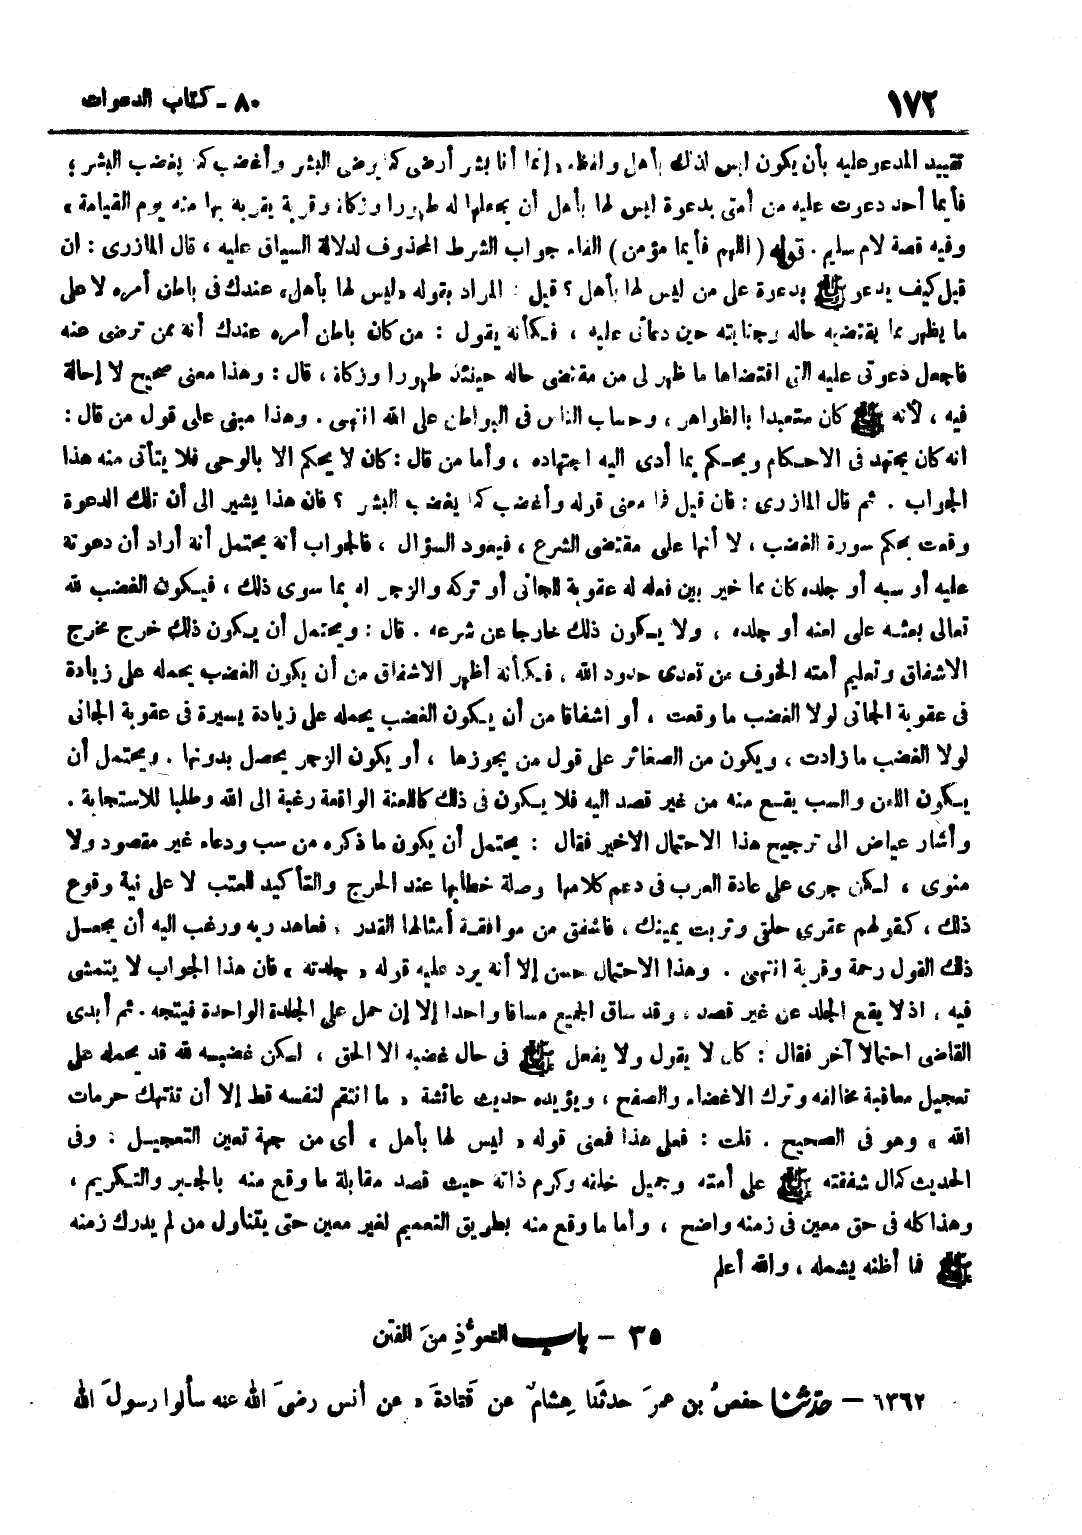 ١٧٢
٨٠ - كتاب الدعوات
تقييد المدعو عليه بأن يكون ليس لذلك بأهل ولفظه «إنما أنا بشر أرضى كما يرضى البشر وأغضب كما يغضب البشر ؛
فأيما أحد دعوت عليه من أمتى بدعوة ليس لها بأهل أن يجعلها له طهورا وزكاة وقربة يقربه بها منه يوم القيامة »
وفيه قصة لام سليم . قوله ( اللهم فأيما مؤمن ) الفاء جواب الشرط المحذوف لدلالة السياق عليه ، قال المازرى : ان
قيل كيف يدعو ﷺ بدعوة على من ليس لها بأهل ؟ قيل : المراد بقوله «ليس لها بأهل» عندك فى باطن أمره لا على
ما يظهر مما يقتضيه حاله وجنايته حين دعائى عليه ، فكأنه يقول : من كان باطن أمره عندك أنه ممن ترضى عنه
فاجعل دعوتى عليه التى اقتضاها ما ظهر لى من مقتضى حاله حينئذ طهورا وزكاة ، قال : وهذا معنى صحيح لا إحالة
فيه ، لأنه ﷺ كان متعبدا بالظواهر ، وحساب الناس فى البواطن على الله انتهى . وهذا مبنى على قول من قال :
انه كان يجتهد فى الاحكام ويحكم بما أدى اليه اجتهاده ، وأما من قال : كان لا يحكم الا بالوحى فلا يتأتى منه هذا
الجواب . ثم قال المازرى : فان قيل فما معنى قوله وأغضب كما يغضب البشر ؟ فان هذا يشير الى أن تلك الدعوة
وقعت بحكم سورة الغضب ، لا أنها على مقتضى الشرع ، فيعود السؤال ، فالجواب أنه يحتمل أنه أراد أن دعوته
عليه أو سبه أو جلده كان مما خير بين فعله له عقوبة للجانى أو تركه والزجر له بما سوى ذلك ، فيكون الغضب لله
تعالى بعثه على لعنه أو جلده ، ولا يكون ذلك خارجا عن شرعه . قال : ويحتمل أن يكون ذلك خرج مخرج
الاشفاق وتعليم أمته الخوف من تعدى حدود الله ، فكأنه أظهر الاشفاق من أن يكون الغضب يحمله على زيادة
فى عقوبة الجانى لولا الغضب ما وقعت ، أو اشفاقا من أن يكون الغضب يحمله على زيادة يسيرة فى عقوبة الجانى
لولا الغضب ما زادت ، ويكون من الصغائر على قول من يجوزها ، أو يكون الزجر يحصل بدونها . ويحتمل أن
يكون اللعن والسب يقع منه من غير قصد اليه فلا يكون فى ذلك كاللعنة الواقعة رغبة الى الله وطلبا للاستجابة .
وأشار عياض الى ترجيح هذا الاحتمال الاخير فقال : يحتمل أن يكون ما ذكره من سب ودعاء غير مقصود ولا
منوى ، لكن جرى على عادة العرب فى دعم كلامها وصلة خطابها عند الحرج والتأكيد للعتب لا على نية وقوع
ذلك ، كقولهم عقرى حلقى وتربت يمينك ، فاشفق من موافقة أمثالها القدر ، فعاهد ربه ورغب اليه أن يجعل
ذلك القول رحمة وقربة انتهى . وهذا الاحتمال حسن إلا أنه يرد عليه قوله « جلدته » فان هذا الجواب لا يتمشى
فيه ، اذ لا يقع الجلد عن غير قصد ، وقد ساق الجميع مساقا واحدا إلا إن حمل على الجلدة الواحدة فيتجه . ثم أبدى
القاضى احتمالا آخر فقال : كان لا يقول ولا يفعل ﷺ فى حال غضبه الا الحق ، لكن غضبه لله قد يحمله على
تعجيل معاقبة مخالفه وترك الاغضاء والصفح ، ويؤيده حديث عائشة « ما انتقم لنفسه قط إلا أن تنتهك حرمات
الله » وهو فى الصحيح . قلت : فعلى هذا فمعنى قوله « ليس لها بأهل » أى من جهة تعين التعجيل . وفى
الحديث كمال شفقته ﷺ على أمته وجميل خلقه وكرم ذاته حيث قصد مقابلة ما وقع منه بالجبر والتكريم ،
وهذا كله فى حق معين فى زمنه واضح ، وأما ما وقع منه بطريق التعميم لغير معين حتى يتناول من لم يدرك زمنه
ﷺ فما أظنه يشمله ، والله أعلم
٣٥ - باب التعوُّذِ منَ الفتن
٦٣٦٢ - حدّثنا حفصُ بن عمرَ حدثَنا هِشامٌ عن قَتادةَ « عن أنس رضىَ الله عنه سألوا رسولَ الله